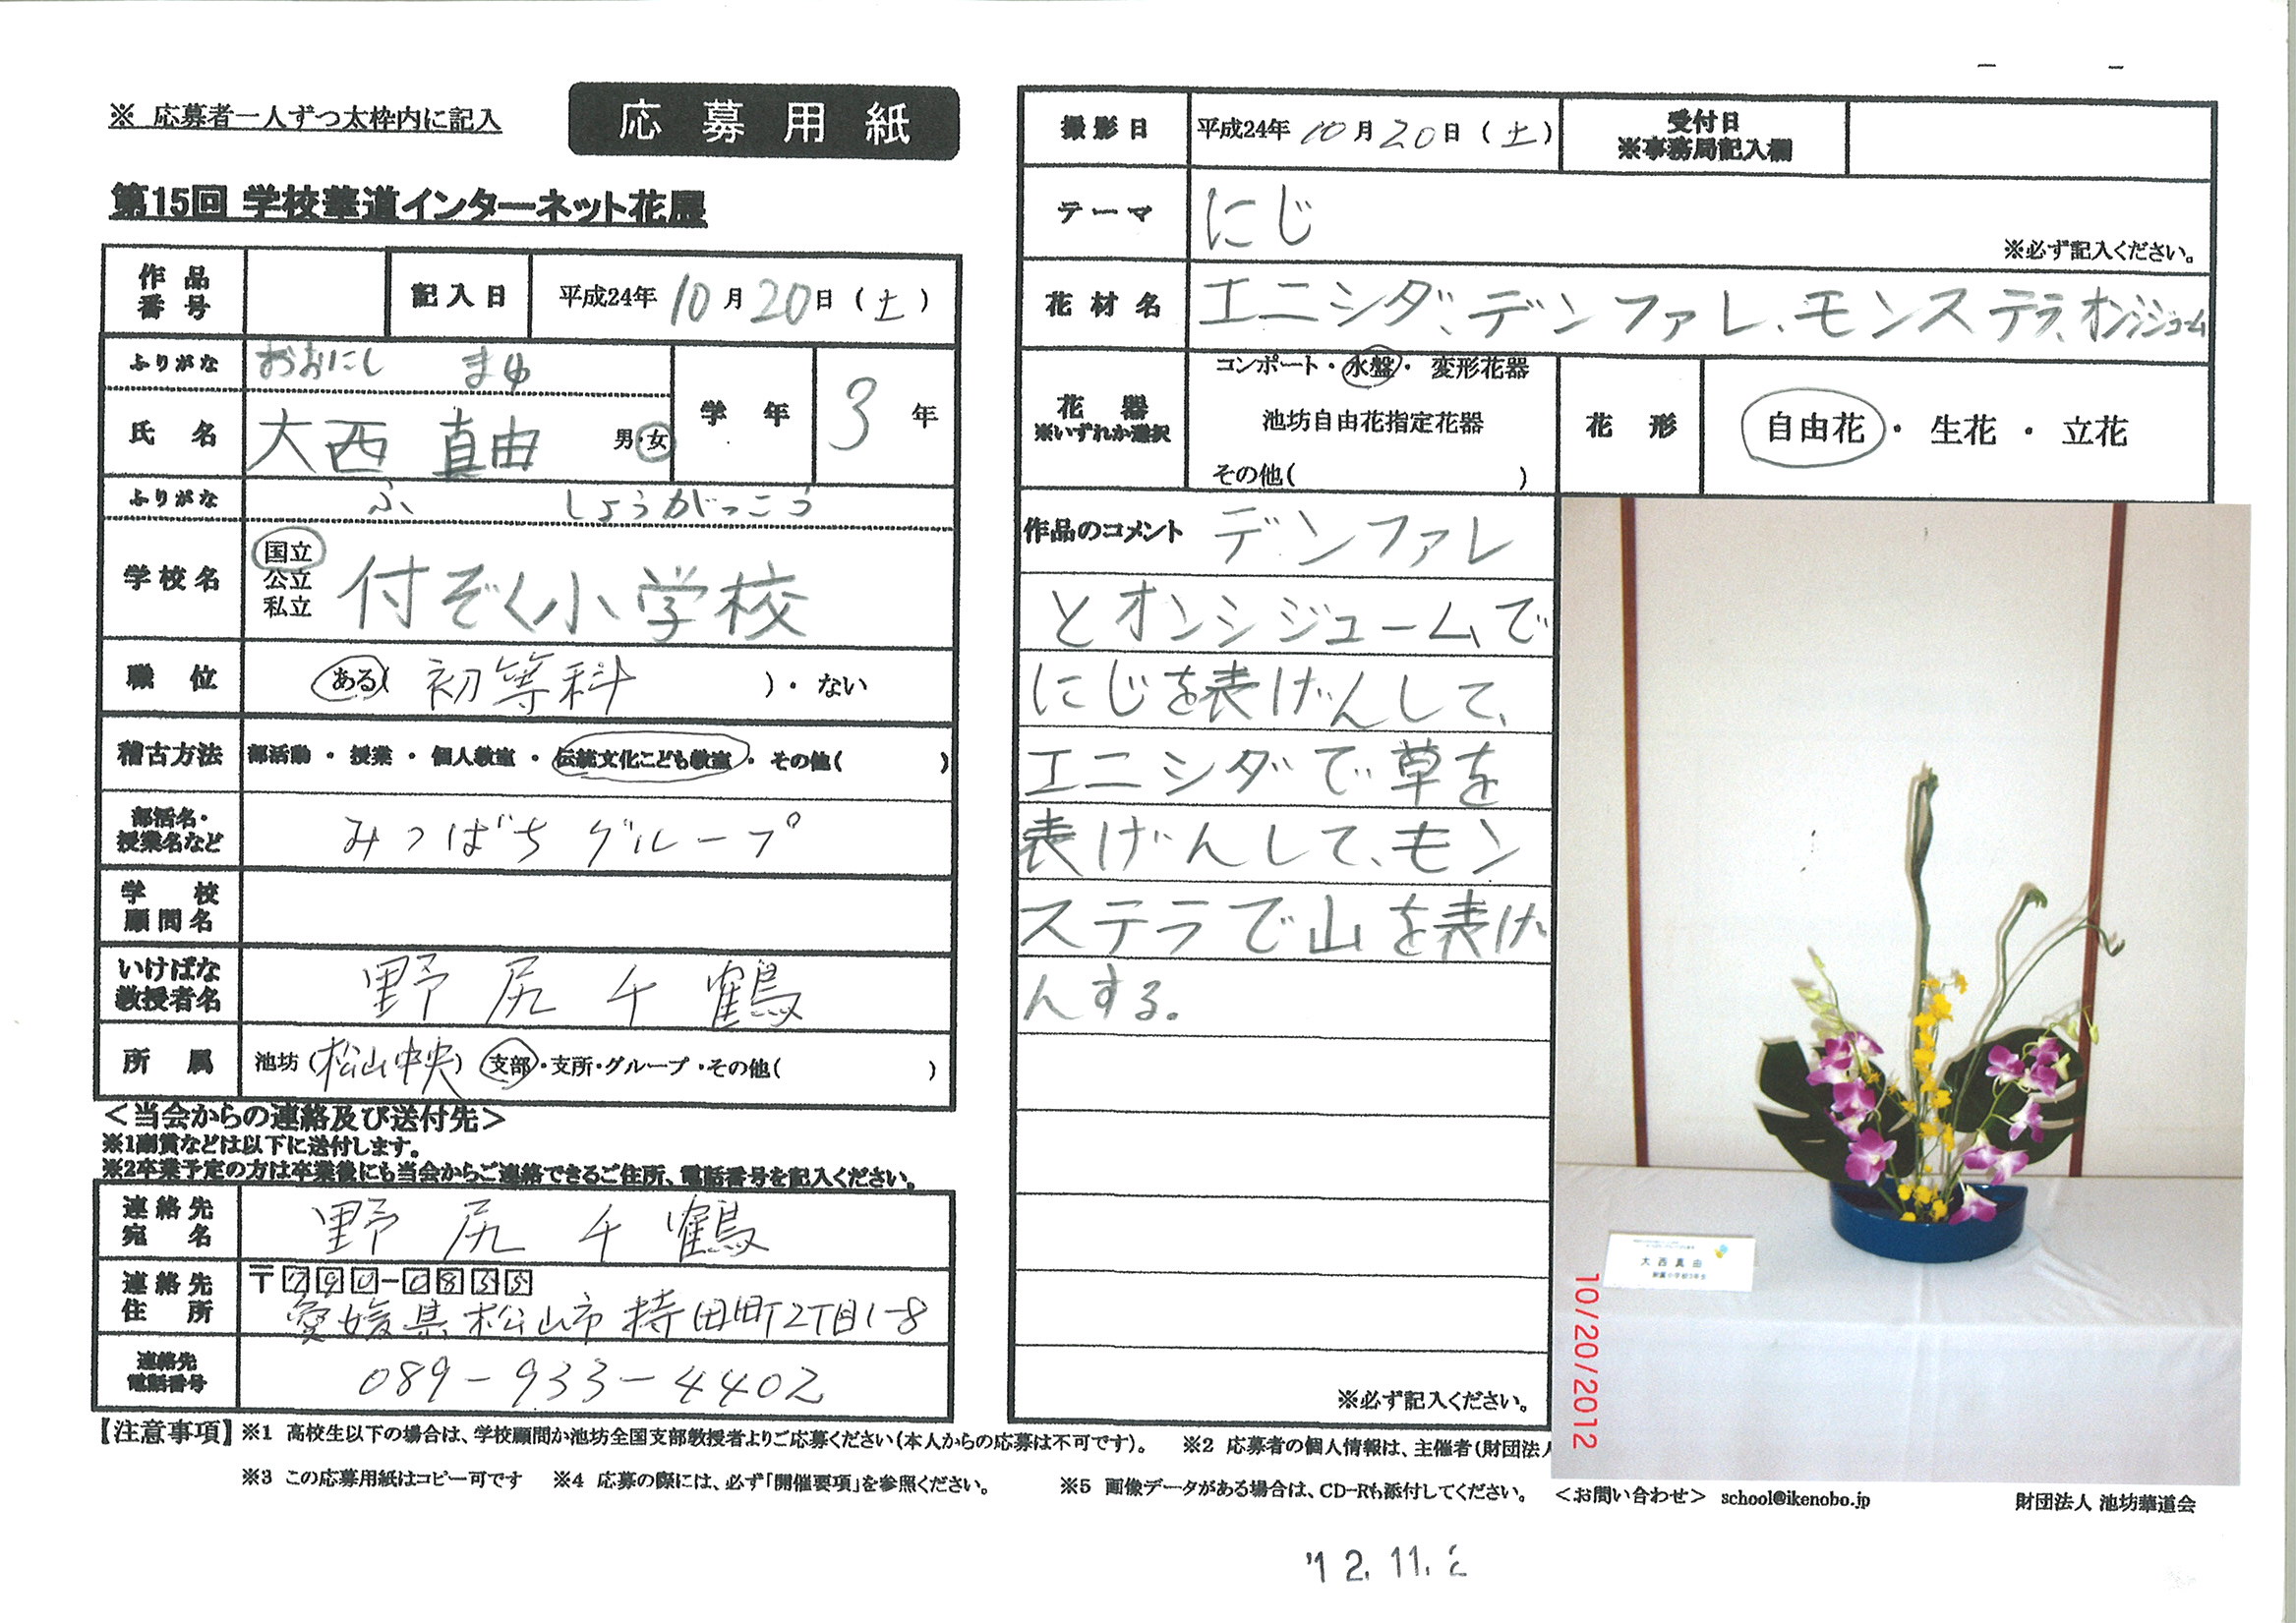 ※ 応募者一人ずつ太枠内に記入
応募用紙
第15回 学校華道インターネット花展
作品番号
記入日 平成24年 10月20日（土）
ふりがな おおにし まゆ
氏名 大西 真由 男・女
学年 3年
ふりがな ふ しょうがっこう
学校名 国立 公立 私立 付ぞく小学校
職位 ある（ 初等科 ）・ ない
稽古方法 部活動 ・ 授業 ・ 個人教室 ・ 伝統文化こども教室 ・ その他（ ）
部活名・授業名など みつばちグループ
学校顧問名
いけばな教授者名 野尻千鶴
所属 池坊（松山中央）支部・支所・グループ・その他（ ）
＜当会からの連絡及び送付先＞
※1副賞などは以下に送付します。
※2卒業予定の方は卒業後にも当会からご連絡できるご住所、電話番号を記入ください。
連絡先宛名 野尻千鶴
連絡先住所 〒790-0855
愛媛県松山市持田町2丁目1-8
連絡先電話番号 089-933-4402
撮影日 平成24年 10月20日（土）
受付日
※事務局記入欄
テーマ にじ
※必ず記入ください。
花材名 エニシダ、デンファレ、モンステラ、オンシジューム
花器
※いずれか選択
コンポート・水盤・変形花器
池坊自由花指定花器
その他（ ）
花形 自由花・生花・立花
作品のコメント デンファレ
とオンシジュームで
にじを表げんして、
エニシダで草を
表げんして、モン
ステラで山を表げ
んする。
※必ず記入ください。
大西真由
10/20/2012
【注意事項】※1 高校生以下の場合は、学校顧問か池坊全国支部教授者よりご応募ください（本人からの応募は不可です）。 ※2 応募者の個人情報は、主催者（財団法人
※3 この応募用紙はコピー可です ※4 応募の際には、必ず「開催要項」を参照ください。 ※5 画像データがある場合は、CD-Rも添付してください。 ＜お問い合わせ＞ school@ikenobo.jp 財団法人 池坊華道会
'12.11.